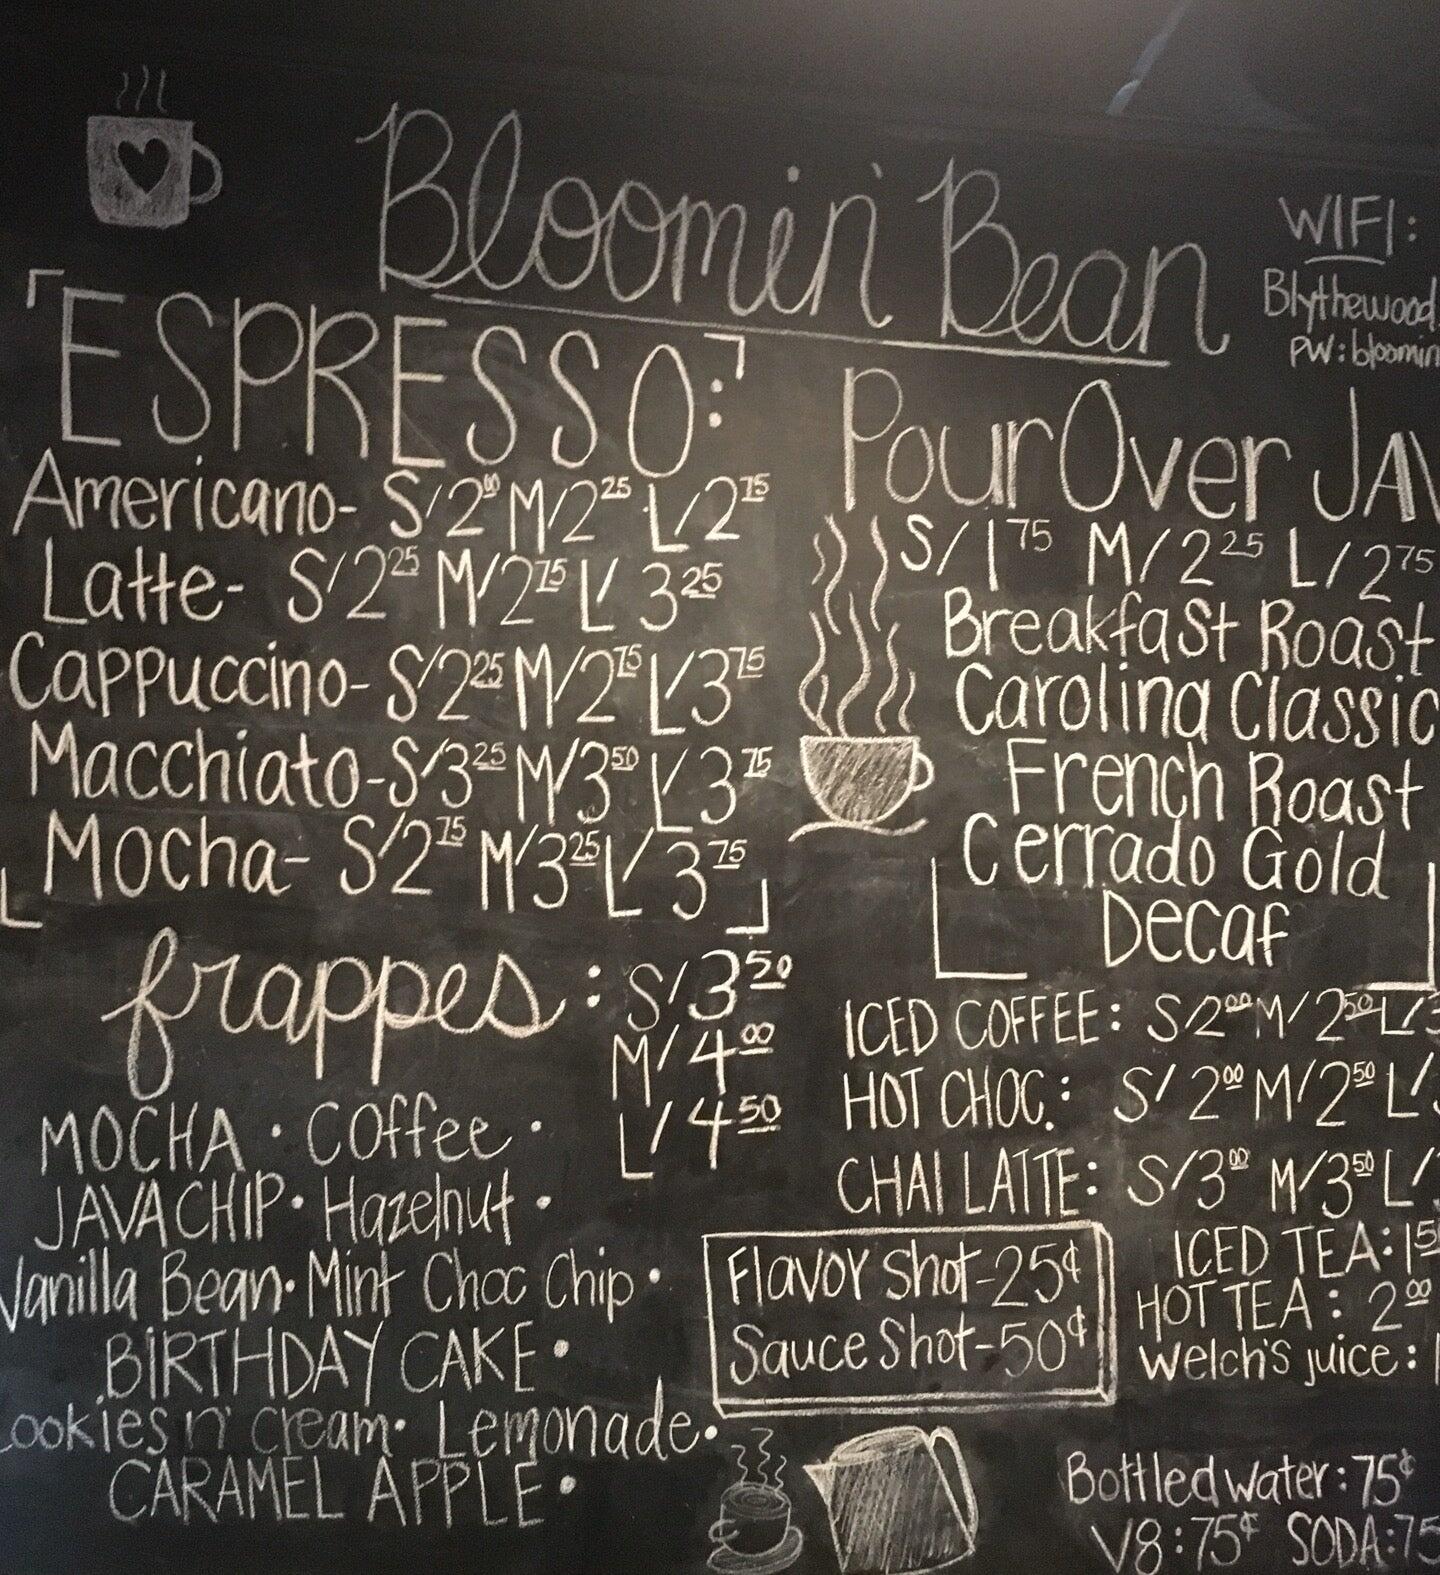 Bloomin' Bean
WIFI:
Blythewood
PW: bloomin
ESPRESSO:
Americano- S/2⁰⁰ M/2²⁵ L/2⁷⁵
Latte- S/2²⁵ M/2⁷⁵ L/3²⁵
Cappuccino- S/2²⁵ M/2⁷⁵ L/3⁷⁵
Macchiato- S/3²⁵ M/3⁵⁰ L/3⁷⁵
Mocha- S/2⁷⁵ M/3²⁵ L/3⁷⁵
frappes: S/3⁵⁰
M/4⁰⁰
L/4⁵⁰
MOCHA • Coffee •
JAVA CHIP • Hazelnut •
Vanilla Bean • Mint Choc Chip •
BIRTHDAY CAKE •
ookies n' cream • Lemonade •
CARAMEL APPLE •
Pour Over JAV
S/1⁷⁵ M/2²⁵ L/2⁷⁵
Breakfast Roast
Carolina Classic
French Roast
Cerrado Gold
Decaf
ICED COFFEE: S/2⁰⁰ M/2⁵⁰ L/3
HOT CHOC.: S/2⁰⁰ M/2⁵⁰ L/
CHAI LATTE: S/3⁰⁰ M/3⁵⁰ L/
Flavor Shot-25¢
Sauce Shot-50¢
ICED TEA: 1⁵⁰
HOT TEA: 2⁰⁰
Welch's juice: 1
Bottled water: 75¢
V8: 75¢ SODA: 75